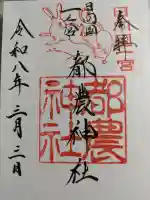 奉拝
日向国
一之宮
都農神社
都農
神社
令和八年
三月三日